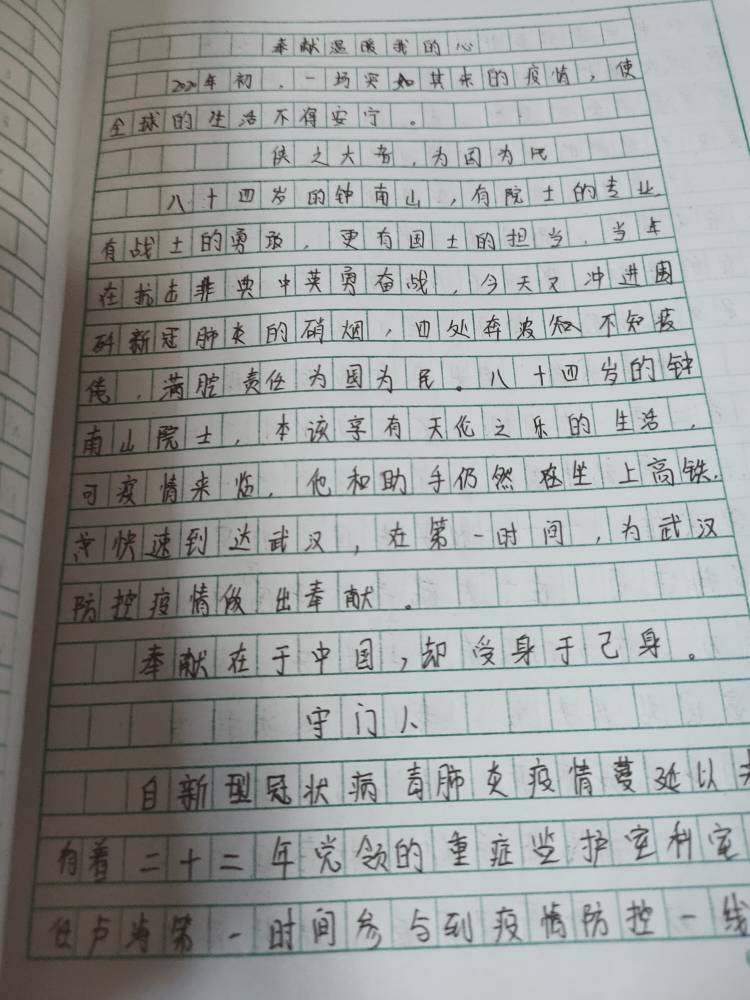 奉献温暖我的心
2020年初，一场突如其来的疫情，使
全球的生活不得安宁。
侠之大者，为国为民
八十四岁的钟南山，有院士的专业，
有战士的勇敢，更有国士的担当，当年
在抗击非典中英勇奋战，今天又冲进
新冠肺炎的硝烟，四处奔波不知疲
倦，满腔责任为国为民。八十四岁的钟
南山院士，本该享有天伦之乐的生活，
可疫情来临，他和助手仍然坐上高铁，
快速到达武汉，在第一时间，为武汉
防控疫情做出奉献。
奉献在于中国，却受身于己身。
守门人
自新型冠状病毒肺炎疫情蔓延以来
有着二十二年党领的重症监护室科室
任卢海第一时间参与到疫情防控一线